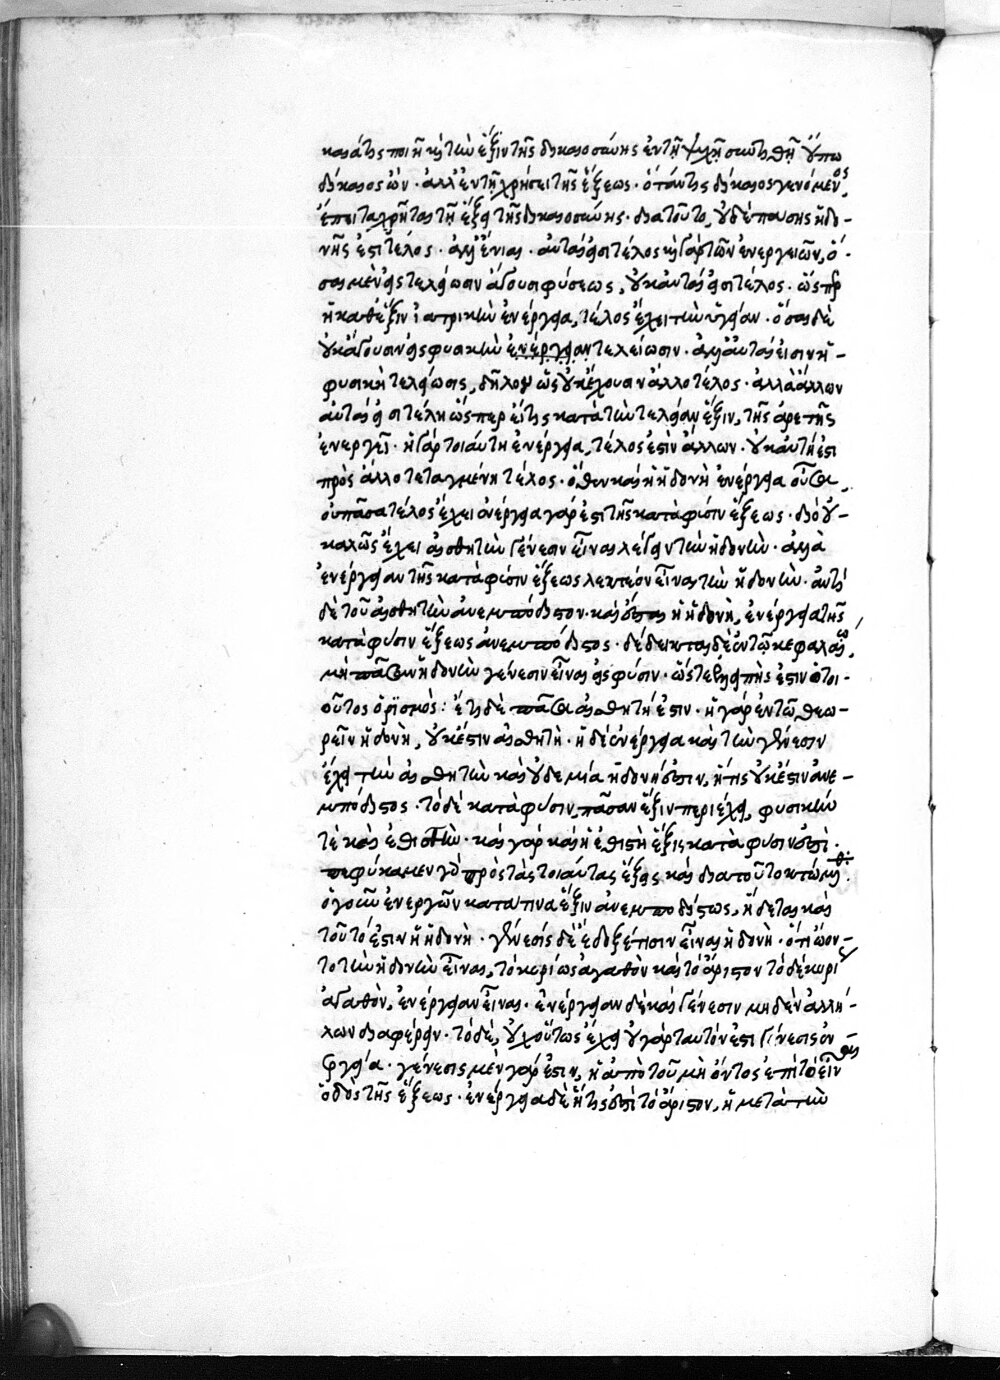 καὶ ἅτις ποιῆ καὶ τὴν ἕξιν τῆς δικαιοσύνης ἐν τῇ ψυχῇ συντεθῇ οὔπω
δίκαιος ὤν· ἀλλ' ἐν τῇ χρήσει τῆς ἕξεως· ὅταν τις δίκαιος γενόμενος,
ἔπειτα χρῆται τῇ ἕξει τῆς δικαιοσύνης· διὰ τοῦτο, οὐδὲ πάσης ἡδο-
νῆς ἐστὶ τέλος· ἀλλ' ἔνιαι· αὐταί εἰσι τέλος καὶ γὰρ τῶν ἐνεργειῶν, ὅ-
σαι μὲν εἰς τελείωσιν ἄγουσι φύσεως, οὐκ αὐταί εἰσι τέλος· ὥσπερ
ἡ καθ' ἕξιν ἰατρικὴν ἐνέργεια, τέλος ἔχει τὴν ὑγείαν· ὅσαι δὲ
οὐκ ἄγουσιν εἰς φυσικὴν ἐνέργειαν τελείωσιν· ἀλλ' αὐταί εἰσιν ἡ
φυσικὴ τελείωσις, δῆλον ὡς οὐκ ἔχουσιν ἄλλο τέλος· ἀλλὰ ἄλλων
αὐταί εἰσι τέλη ὥσπερ εἴ τις κατὰ τὴν τελείαν ἕξιν, τῆς ἀρετῆς
ἐνεργεῖ· ἡ γὰρ τοιαύτη ἐνέργεια, τέλος ἐστὶν ἄλλων· οὐκ αὐτή ἐστι
πρὸς ἄλλο τεταγμένη τέλος· ὅθεν καὶ ἡ ἡδονὴ ἐνέργεια οὖσα,
οὐ πᾶσα τέλος ἔχει ἐνέργεια γάρ ἐστι τῆς κατὰ φύσιν ἕξεως· διὸ οὐ
καλῶς ἔχει αἰσθητὴν γένεσιν εἶναι λέγειν τὴν ἡδονήν· ἀλλὰ
ἐνέργειαν τῆς κατὰ φύσιν ἕξεως λεκτέον εἶναι τὴν ἡδονήν· ἀντὶ
δὲ τοῦ αἰσθητὴν ἀνεμπόδιστον· καὶ ἔσται ἡ ἡδονή, ἐνέργεια τῆς
κατὰ φύσιν ἕξεως ἀνεμπόδιστος· δέδεικται δὲ ἐν τῷ κεφαλαίῳ,
μὴ πᾶσαν ἡδονὴν γένεσιν εἶναι εἰς φύσιν· ὥστε ἐλλιπής ἐστιν ὁ τοι-
οῦτος ὁρισμός: ἔτι δὲ πᾶσα αἰσθητή ἐστιν· ἡ γὰρ ἐν τῷ θεω-
ρεῖν ἡδονή, οὐκ ἔστιν αἰσθητή· ἡ δὲ ἐνέργεια καὶ τὴν γένεσιν
ἔχει τὴν αἰσθητὴν καὶ οὐδεμία ἡδονή ἐστιν, ἥτις οὐκ ἔστιν ἀνε-
μπόδιστος· τὸ δὲ κατὰ φύσιν, πᾶσαν ἕξιν περιέχει, φυσικήν
τε καὶ ἐθιστήν· καὶ γὰρ καὶ ἡ ἐθιστὴ ἕξις κατὰ φύσιν ἐστί·
πεφύκαμεν γὰρ πρὸς τὰς τοιαύτας ἕξεις καὶ διὰ τοῦτο κτώμεθα·
ὁ γοῦν ἐνεργῶν κατά τινα ἕξιν ἀνεμποδίστως, ἥδεται καὶ
τοῦτό ἐστιν ἡ ἡδονή· γένεσις δὲ ἔδοξέ τισιν εἶναι ἡδονή· ὅτι ᾤον-
το τὴν ἡδονὴν εἶναι, τὸ κυρίως ἀγαθὸν καὶ τὸ ἄριστον τὸ δὲ κυρίως
ἀγαθὸν, ἐνέργειαν εἶναι· ἐνέργειαν δὲ καὶ γένεσιν μηδὲν ἀλλή-
λων διαφέρειν· τὸ δὲ, οὐχ οὕτως ἔχει οὐ γὰρ ταυτόν ἐστι γένεσις ἐν-
έργεια· γένεσις μὲν γάρ ἐστιν, ἡ ἀπὸ τοῦ μὴ ὄντος ἐπὶ τὸ εἶναι
ὁδὸς τῆς ἕξεως· ἐνέργεια δὲ ἥτις ἐστὶ τὸ ἄριστον, ἡ μετὰ τὴν